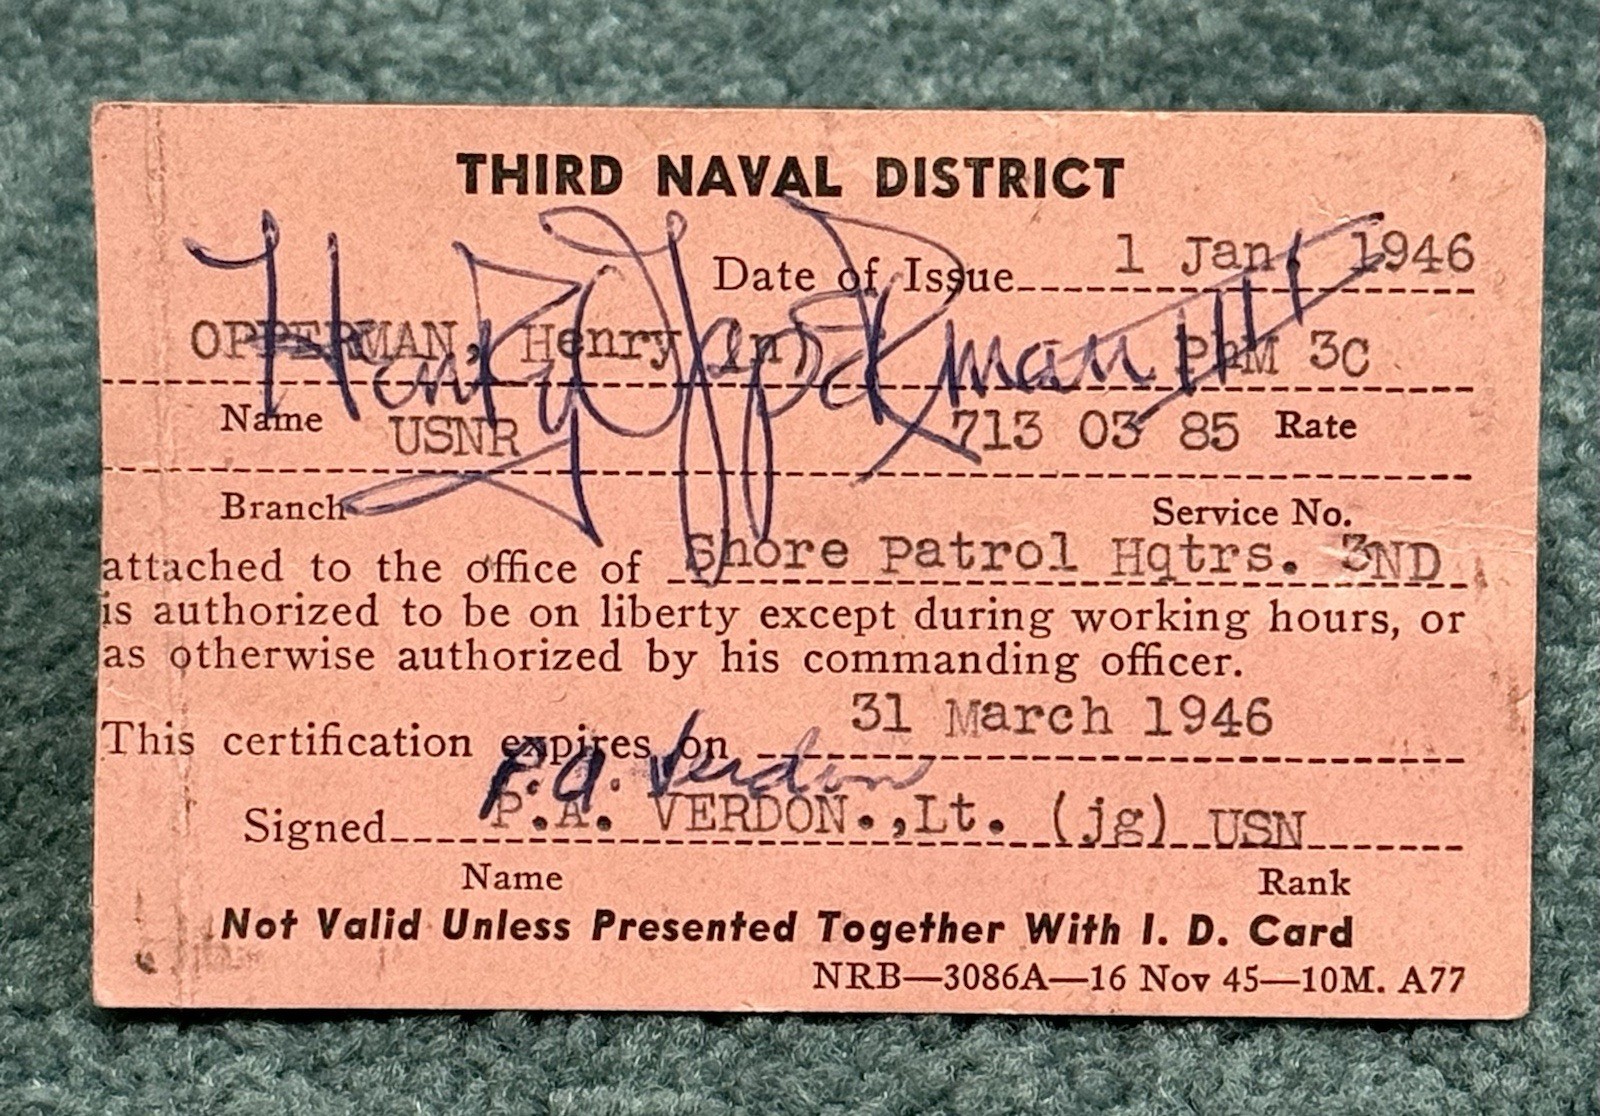 THIRD NAVAL DISTRICT
Date of Issue 1 Jan. 1946
OPPERMAN, Henry (n) PhM 3C
Henry Opperman III
Name Rate
USNR 713 03 85
Branch Service No.
attached to the office of Shore Patrol Hqtrs. 3ND
is authorized to be on liberty except during working hours, or
as otherwise authorized by his commanding officer.
This certification expires on 31 March 1946
P.A. Verdon
Signed P.A. VERDON.,Lt. (jg) USN
Name Rank
Not Valid Unless Presented Together With I. D. Card
NRB—3086A—16 Nov 45—10M. A77